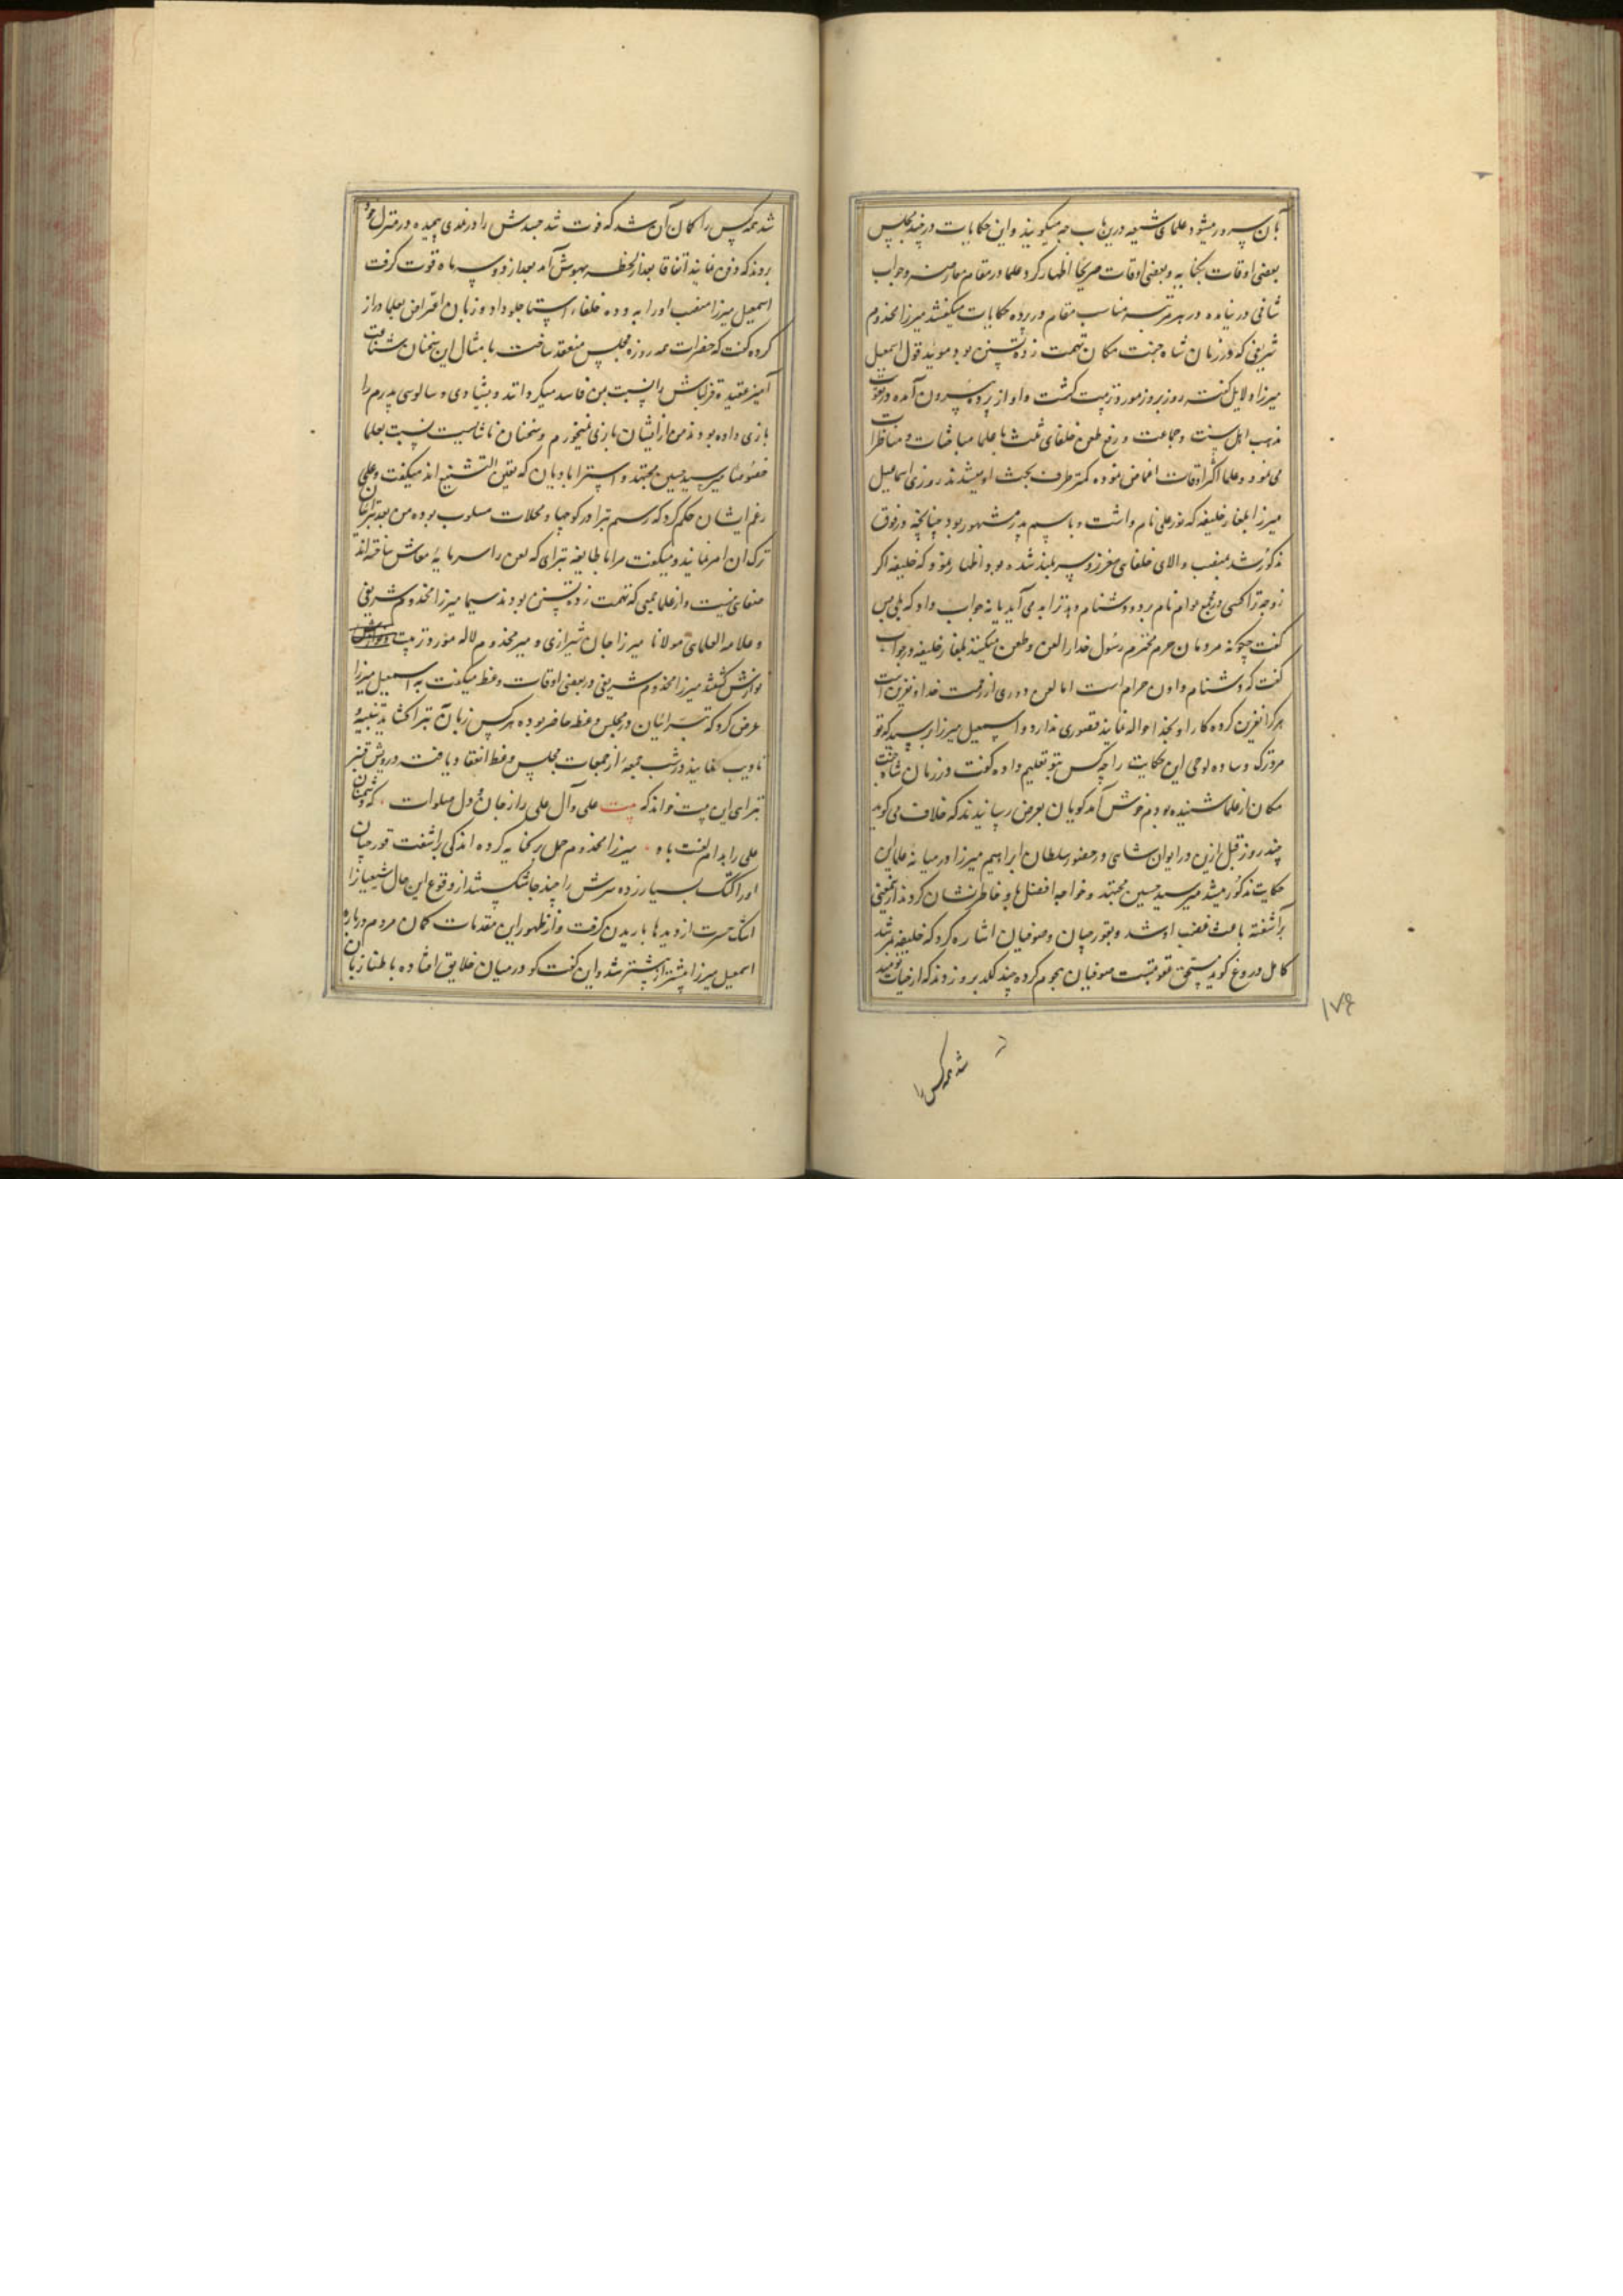 بآن سرور میشود علمای شیعه درین باب چه میگویند و این حکایات در چند مجلس
بعضی اوقات بکنایه و بعضی اوقات صریحا اظهار کرد علما در مقام معارضه و جواب
شافی در نیامده در هر مرتبه مناسب مقام در پرده حکایات میگفتند میرزا مخدوم
شریفی که در زمان شاه جنت مکان تهمت زده تسنن بود موئید قول اسمعیل
میرزا دلایل گفته روز بروز مورد تربیت گشت و او از پرده بیرون آمده در
مذهب اهل سنت و جماعت و رفع طعن خلفای ثلث با علما مباحثات و مناظرات
می نمود و علما اکثر اوقات اغماض نموده کمتر طرف بحث او میشدند روزی اسماعیل
میرزا بلغار خلیفه که نور علی نام داشت و باسم پدر مشهور بود چنانچه در فوق
مذکور شد بمنصب والای خلفائی معزز و سربلند شده بود اظهار نمود که خلیفه اگر
زوجه ترا کسی در مجمع عوام نام برد و دشنام دهد ترا بد می آید یا نه جواب داد که بلی پس
گفت چگونه مردمان حرم محترم رسول خدا را لعن و طعن میکنند بلغار خلیفه در جواب
گفت که دشنام دادن حرام است اما لعن دوری از رحمت خدا و نفرین است
هر کرا نفرین کرده کار او بخدا حواله نمایند قصوری ندارد و اسمعیل میرزا پرسید که تو
مرد ترک و ساده لوحی این حکایت را چه کس بتو تعلیم داده گفت در زمان شاه جنت
مکان از علما شنیده بودم خوش آمد گویان بعرض رسانیدند که خلاف می گوید
چند روز قبل ازین در ایوان شاهی در حضور سلطان ابراهیم میرزا در میانه علما این
حکایت مذکور میشد میر سید حسین مجتهد و خواجه افضل باو خاطر نشان کردند ازین معنی
برآشفته باعث غضب او شد و بقورچیان و صوفیان اشاره کرد که خلیفه بمرشد
کامل دروغ گوید مستحق عقوبتست صوفیان هجوم کرده چند لگد برو زدند که از حیات نومید
شد همه کس را
۱۷۶
شد همه کس را گمان آن شد که فوت شد جسدش را در نمدی پیچیده در منزل خود
بردند که دفن نمایند اتفاقا بعد از لحظه بهوش آمد بعد از دو سه ماه قوت گرفت
اسمعیل میرزا منصب او را به دده خلفاء استاجلو داد و زبان اعتراض بعلما دراز
کرده گفت که حضرات همه روزه مجلس منعقد ساخته با مثال این سخنان شناعت
آمیز عقیده قزلباش را نسبت بمن فاسد میکردانند و بشیادی و سالوسی پدرم را
بازی داده بودند من از ایشان بازی نمیخورم و سخنان ناشایست نسبت بعلما
خصوصا میر سید حسین مجتهد و استرابادیان که متعین التشیع اند میگفت و علی
رغم ایشان حکم کرد که رسم تبرا در کوچها و محلات مسلوب بوده من بعد تبرائیان
ترک آن امر نمایند و میگفت مرا با طایفه تبرای که لعن را سرمایه معاش ساخته اند
صفای نیست و از علما جمعی که تهمت زده تسنن بودند سیما میرزا مخدوم شریفی
و علامه العلمای مولانا میرزا جان شیرازی و میر مخدوم لاله مورد تربیت
نوازش گشتند میرزا مخدوم شریفی در بعضی اوقات وعظ میگفت به اسمعیل میرزا
عرض کرد که تبرائیان در مجلس وعظ حاضر بوده هر کس زبان به تبرا گشاید تنبیه
تادیب نمایند در شب جمعه از جمعات مجلس وعظ انعقاد یافت درویش قنبر
تبرای این بیت خواند که بیت علی و آل علی را ز جان و دل صلوات که دشمنان
علی را مدام لعنت باد میرزا مخدوم حمل بر کنایه کرده اندکی برآشفت قورچیان
او را کتک بسیار زده سرش را چند جا شکستند از وقوع این حال شیعیانرا
اشک حسرت از دیدها باریدن گرفت و از ظهور این مقدمات گمان مردم درباره
اسمعیل میرزا بیشتر از پیشتر شد و این گفت کو در میان خلایق افتاده باطنا زبان